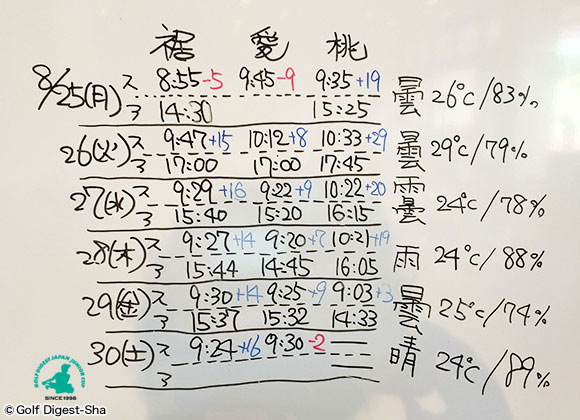 裾 愛 桃
8/25(月) ス 8:55-5 9:45-9 9:35+19 曇 26℃/83%
ア 14:30 15:25
26(火) ス 9:47+15 10:12+8 10:33+29 曇 29℃/79%
ア 17:00 17:00 17:45
27(水) ス 9:29+16 9:22+9 10:22+20 雨 24℃/78%
ア 15:40 15:20 16:15 曇
28(木) ス 9:27+14 9:20+7 10:21+19 雨 24℃/88%
ア 15:44 14:45 16:05
29(金) ス 9:30+14 9:25+9 9:03+3 曇 25℃/74%
ア 15:37 15:32 14:33
30(土) ス 9:24+16 9:30-2 晴 24℃/89%
ア
GOLF DIGEST JAPAN JUNIOR CUP
SINCE 1998
© Golf Digest-Sha